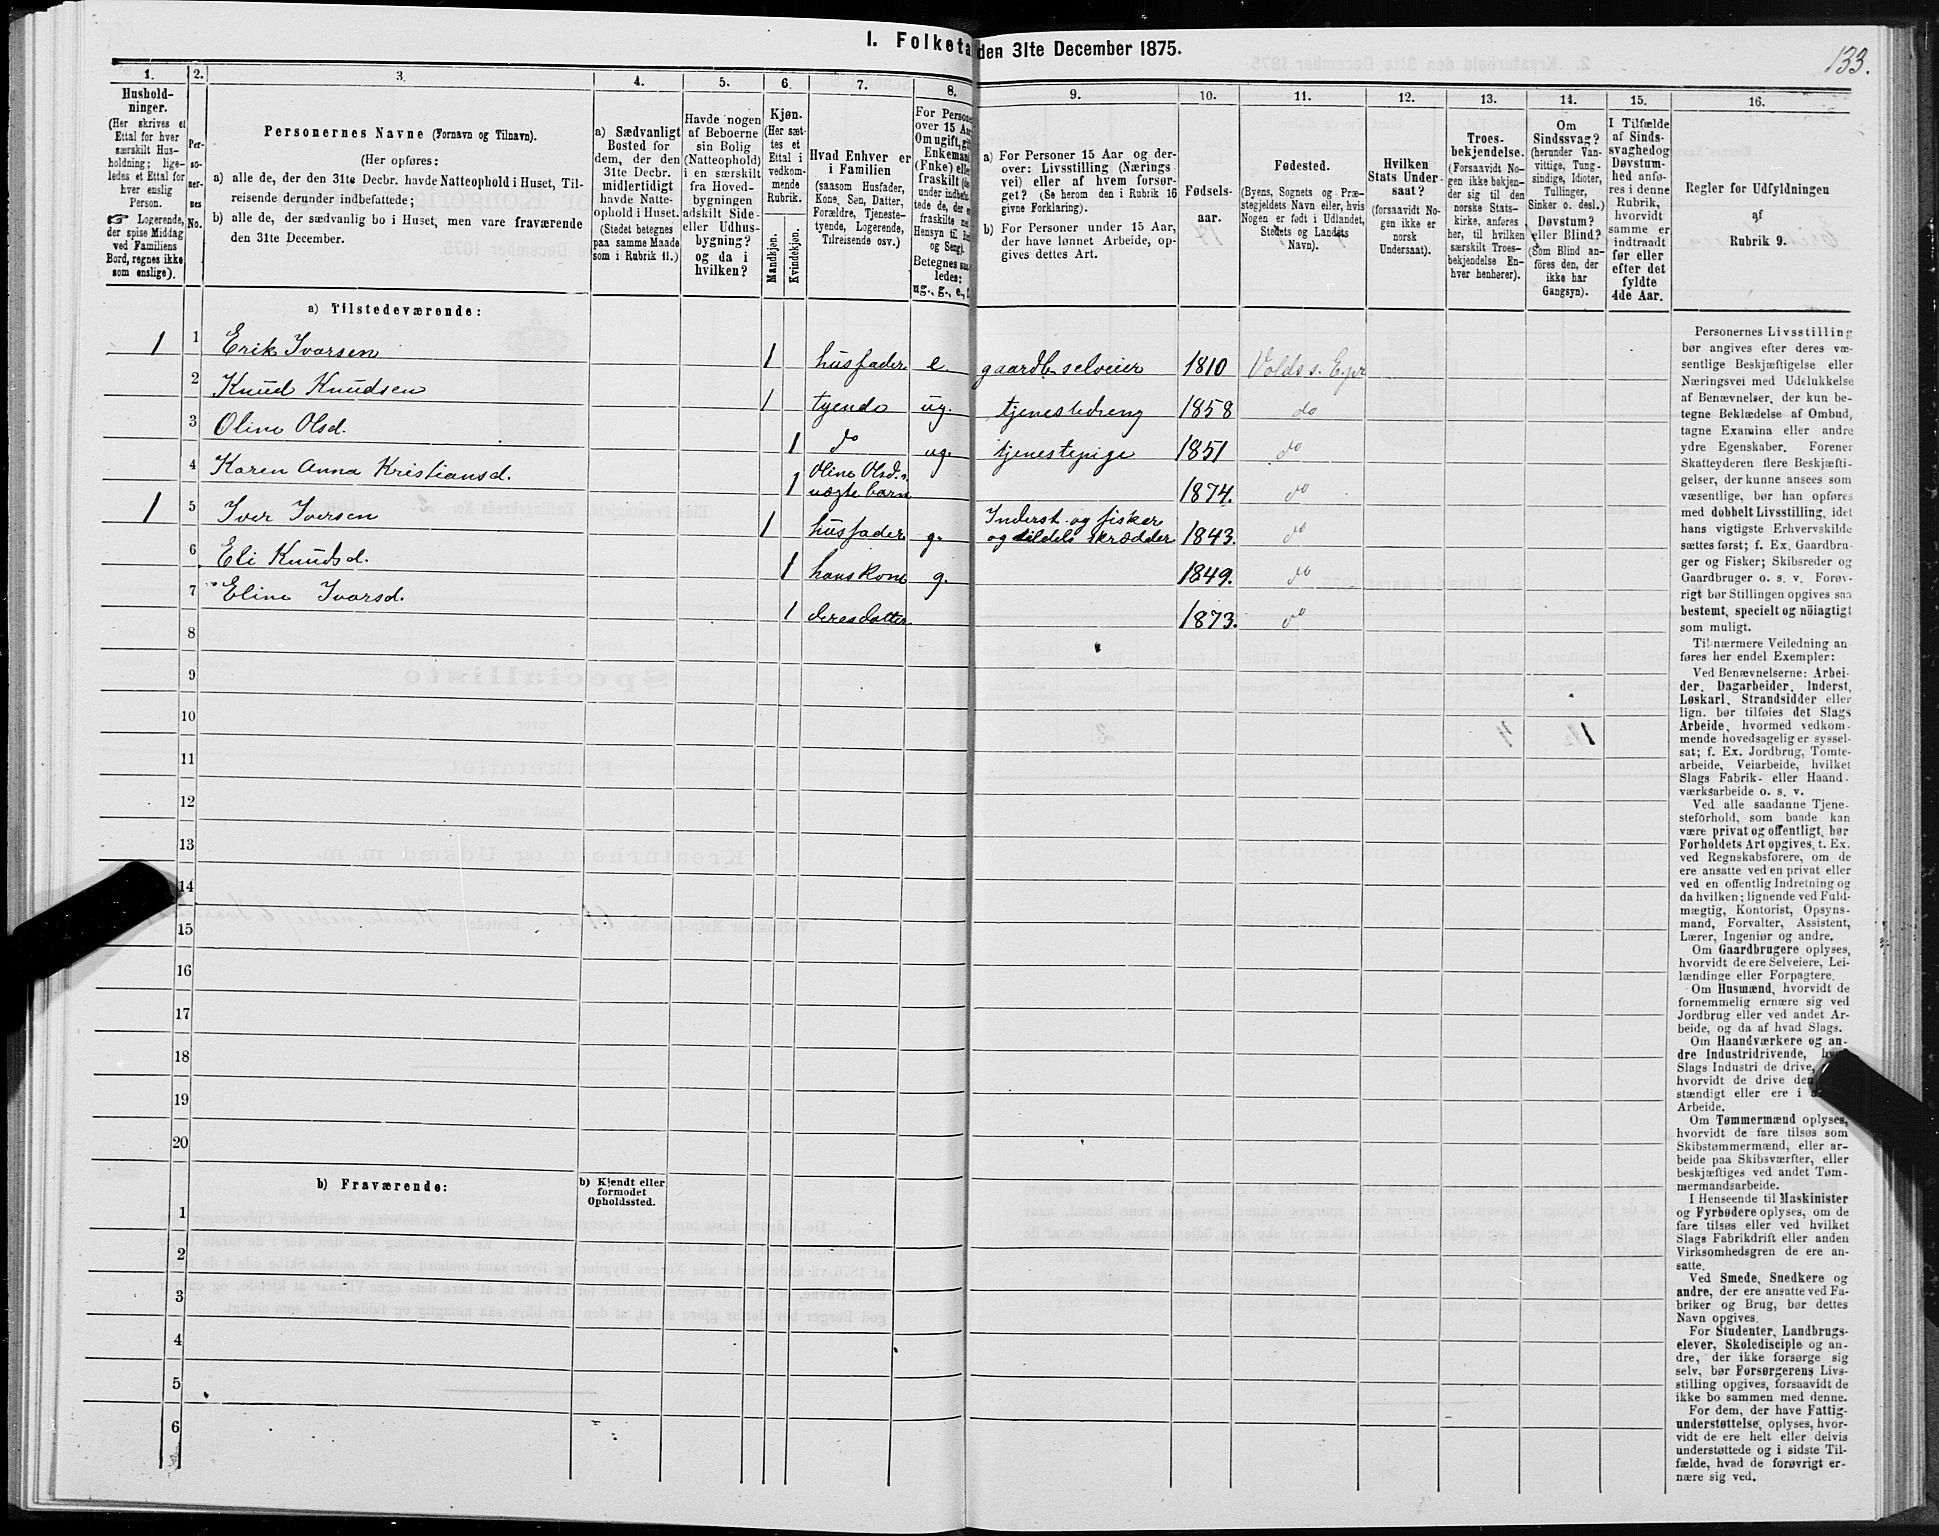 I. Folketa den 31te December 1875.
133.
1.
Hushold-
ninger.
(Her skrives et
Ettal for hver
særskilt Hus-
holdning; lige-
ledes et Ettal for
hver enslig
Person.
☞ Logerende,
der spise Middag
ved Familiens
Bord, regnes ikke
som enslige).
2.
Per-
so-
ner-
nes
No.
3.
Personernes Navne (Fornavn og Tilnavn).
(Her opføres:
a) alle de, der den 31te Decbr. havde Natteophold i Huset, Til-
reisende derunder indbefattede;
b) alle de, der sædvanlig bo i Huset, men vare fraværende
den 31te December.
4.
a) Sædvanligt
Bosted for
dem, der den
31te Decbr.
midlertidigt
havde Natte-
ophold i Huset.
(Stedet betegnes
paa samme Maade
som i Rubrik 11.)
5.
Havde nogen
af Beboerne
sin Bolig
(Natteophold)
i en særskilt
fra Hoved-
bygningen
adskilt Side-
eller Udhus-
bygning?
og da i
hvilken?
6.
Kjøn.
(Her sæt-
tes et
Ettal i
vedkom-
mende
Rubrik.
Mandkjøn.
Kvindekjøn.
7.
Hvad Enhver er
i Familien
(saasom Husfader,
Kone, Søn, Datter,
Forældre, Tjeneste-
tyende, Logerende,
Tilreisende osv.)
8.
For Persone
over 15 Aa
Om ugift, gif
Enkeman
(Enke) elle
fraskilt (s
under indbef
tede de, der
fraskilte m
Hensyn til B
og Seng).
Betegnes saa
ledes:
ug., g., e., f
9.
a) For Personer 15 Aar og der-
over: Livsstilling (Nærings-
vei) eller af hvem forsør-
get? (Se herom den i Rubrik 16
givne Forklaring).
b) For Personer under 15 Aar,
der have lønnet Arbeide, op-
gives dettes Art.
10.
Fødsels-
aar.
11.
Fødested.
(Byens, Sognets og Præ-
stegjeldets Navn eller, hvis
Nogen er født i Udlandet,
Stedets og Landets
Navn).
12.
Hvilken
Stats Under-
saat?
(forsaavidt No-
gen ikke er
norsk
Undersaat).
13.
Troes-
bekjendelse.
(Forsaavidt No-
gen ikke bekjen-
der sig til den
norske Stats-
kirke, anføres
her, til hvilken
særskilt Troes-
bekjendelse En-
hver henhører).
14.
Om
Sindssvag?
(herunder Van-
vittige, Tung-
sindige, Idioter,
Tullinger,
Sinker o. desl.)
Døvstum?
eller Blind?
(Som Blind an-
føres den, der
ikke har
Gangsyn).
15.
I Tilfælde
af Sinds-
svaghed og
Døvstum-
hed anfø-
res i denne
Rubrik,
hvorvidt
samme er
indtraadt
før eller
efter det
fyldte
4de Aar.
16.
Regler for Udfyldningen
af
Rubrik 9.
a) Tilstedeværende:
1 1 Erik Ivarsen 1 husfader e gaardb. selveier 1810 Volds s. E.pr
2 Knud Knudsen 1 tyende ug. tjenestedreng 1858 do
3 Oline Olsd. 1 do ug. tjenestepige 1851 do
4 Karen Anna Kristiansd. 1 Oline Olsd.s uægte barn 1874. do
1 5 Iver Iversen 1 husfader g. Inderst og fisker og tildels skrædder 1843. do
6 Eli Knudsd. 1 hans kone g. 1849. do
7 Eline Ivarsd. 1 deres datter 1873. do
8
9
10
11
12
13
14
15
16
17
18
19
20
b) Fraværende:
b) Kjendt eller
formodet
Opholdssted.
1
2
3
4
5
6
Personernes Livsstilling
bør angives efter deres væ-
sentlige Beskjæftigelse eller
Næringsvei med Udelukkelse
af Benævnelser, der kun be-
tegne Beklædelse af Ombud,
tagne Examina eller andre
ydre Egenskaber. Forener
Skatteyderen flere Beskjæfti-
gelser, der kunne ansees som
væsentlige, bør han opføres
med dobbelt Livsstilling, idet
hans vigtigste Erhvervskilde
sættes først; f. Ex. Gaardbru-
ger og Fisker; Skibsreder og
Gaardbruger o. s. v. Forøv-
rigt bør Stillingen opgives saa
bestemt, specielt og nöiagtigt
som muligt.
Til nærmere Veiledning an-
føres her endel Exempler:
Ved Benævnelserne: Arbei-
der, Dagarbeider, Inderst,
Løskarl, Strandsidder eller
lign. bør tilføies det Slags
Arbeide, hvormed vedkom-
mende hovedsagelig er syssel-
sat; f. Ex. Jordbrug, Tomte-
arbeide, Veiarbeide, hvilket
Slags Fabrik- eller Haand-
værksarbeide o. s. v.
Ved alle saadanne Tjene-
steforhold, som baade kan
være privat og offentligt, bør
Forholdets Art opgives, t. Ex.
ved Regnskabsførere, om de
ere ansatte ved en privat eller
ved en offentlig Indretning og
da hvilken; lignende ved Fuld-
mægtig, Kontorist, Opsyns-
mand, Forvalter, Assistent,
Lærer, Ingeniør og andre.
Om Gaardbrugere oplyses,
hvorvidt de ere Selveiere, Lei-
lændinge eller Forpagtere.
Om Husmænd, hvorvidt de
fornemmelig ernære sig ved
Jordbrug eller ved andet Ar-
beide, og da af hvad Slags.
Om Haandværkere og an-
dre Industridrivende,
Slags Industri de drive,
hvorvidt de drive den
stændigt eller ere i
Arbeide.
Om Tømmermænd oplyses,
hvorvidt de fare tilsøs som
Skibstømmermænd, eller ar-
beide paa Skibsværfter, eller
beskjæftiges ved andet Tøm-
mermandsarbeide.
I Henseende til Maskinister
og Fyrbødere oplyses, om de
fare tilsøs eller ved hvilket
Slags Fabrikdrift eller anden
Virksomhedsgren de ere an-
satte.
Ved Smede, Snedkere og
andre, der ere ansatte ved Fa-
briker og Brug, bør dettes
Navn opgives.
For Studenter, Landbrugs-
elever, Skoledisciple og an-
dre, der ikke forsørge sig
selv, bør Forsørgerens Livs-
stilling opgives, forsaavidt de
ikke bo sammen med denne.
For dem, der have Fattig-
understøttelse, oplyses, hvor-
vidt de ere helt eller delvis
understøttede og i sidste Til-
fælde, hvad de forøvrigt er-
nære sig ved.